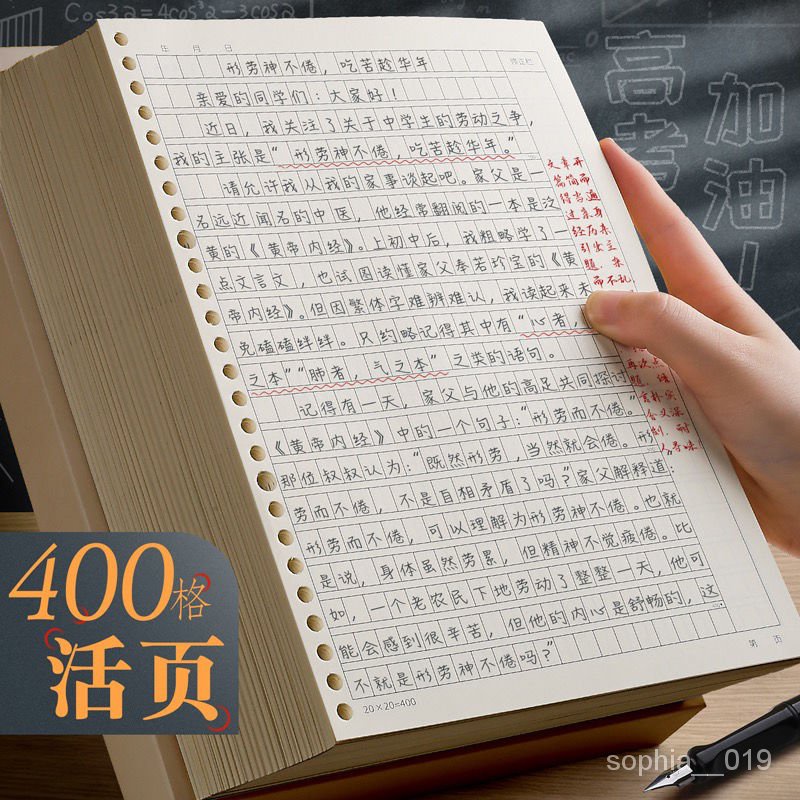 Cos3α=4cos³α-3cosα
高考
加油!
年 月 日
修正栏
形劳神不倦，吃苦趁华年
亲爱的同学们：大家好！
近日，我关注了关于中学生的劳动之争，
我的主张是“形劳神不倦，吃苦趁华年。”
请允许我从我的家事谈起吧。家父是一
名远近闻名的中医，他经常翻阅的一本是泛
黄的《黄帝内经》。上初中后，我粗略学了一
点文言文，也试图读懂家父奉若珍宝的《黄
帝内经》。但因繁体字难辨难认，我读起来未
免磕磕绊绊。只约略记得其中有“心者，
之本”“肺者，气之本”之类的语句。
记得有一天，家父与他的高足共同探讨
《黄帝内经》中的一个句子：“形劳而不倦。”
那位叔叔认为：“既然形劳，当然就会倦。形
劳而不倦，不是自相矛盾了吗？”家父解释道：
形劳而不倦，可以理解为形劳神不倦。也就
是说，身体虽然劳累，但精神不觉疲倦。比
如，一个老农民下地劳动了整整一天，他可
能会感到很辛苦，但他的内心是舒畅的，这
不就是形劳神不倦吗？”
20×20=400
第 页
文章开
篇简而
得当通
过亲身
经历来
引出主
题，亲
而不乱
再次点
题，结
含义深
刻，耐
人寻味
400格
活页
sophia__019